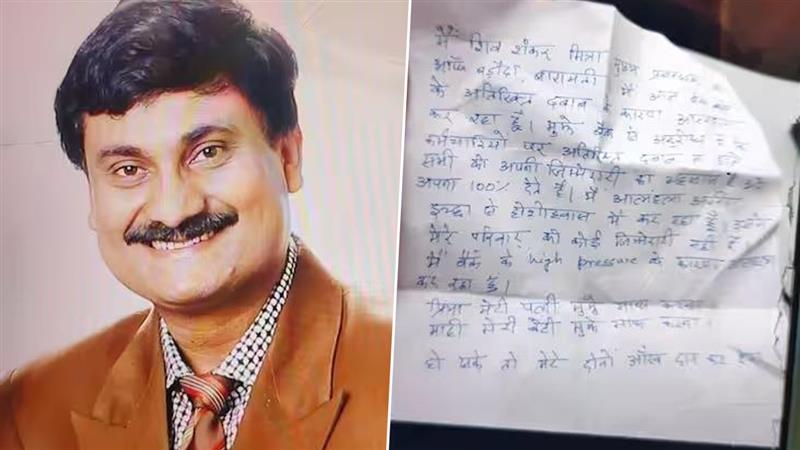 मैं शिव शंकर मित्रा मुख्य प्रबन्धक
ऑफ बड़ौदा, बारामती । मैं आज बैंक
के अतिरिक्त दबाव के कारण आत्महत्या
कर रहा हूँ । मुझे बैंक से अनुरोध है
कर्मचारियों पर अतिरिक्त दबाव न
सभी को अपनी जिम्मेदारी का
अपना 100% देते हैं । मैं आत्महत्या अपनी
इच्छा से होशोहवास में कर रहा हूँ । इसमें
मेरे परिवार की कोई जिम्मेदारी नहीं है ।
मैं बैंक के high pressure के कारण
कर रहा हूँ ।
प्रिया मेरी पत्नी मुझे माफ करना
माही मेरी बेटी मुझे माफ करना ।
हो सके तो मेरे दोनों आँख दान कर